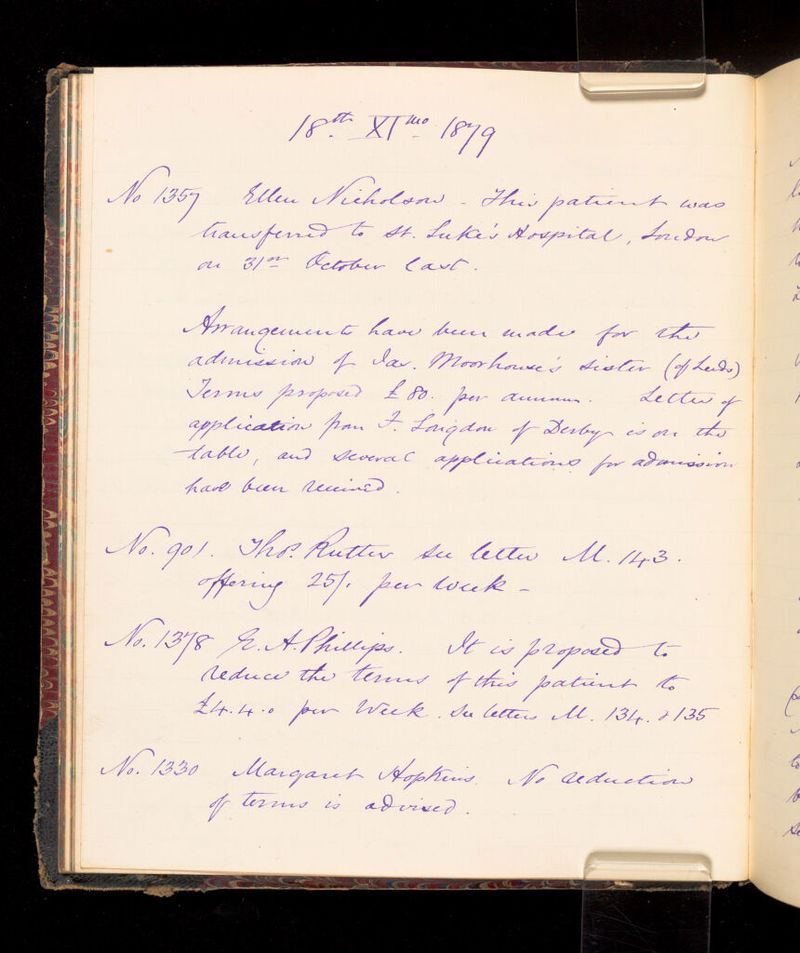 18th XImo 1879
No 1357 Ellen Nicholson - This patient was
transferred to St. Luke's Hospital, London
on 31st October last.
Arrangements have been made for the
admission of Jas. Moorhouse's sister (of Leeds)
Terms proposed £80. per annum. Letter of
application from F. Longdon of Derby is on the
table, and several applications for admission
have been received.
No. 901. Thos. Rutter see letter M. 143.
offering 25/. per week -
No. 1378 E. A. Phillips. It is proposed to
reduce the terms of this patient to
£4.4.0 per Week. See letters M. 134. & 135
No. 1330 Margaret Hopkins. No reduction
of terms is advised.